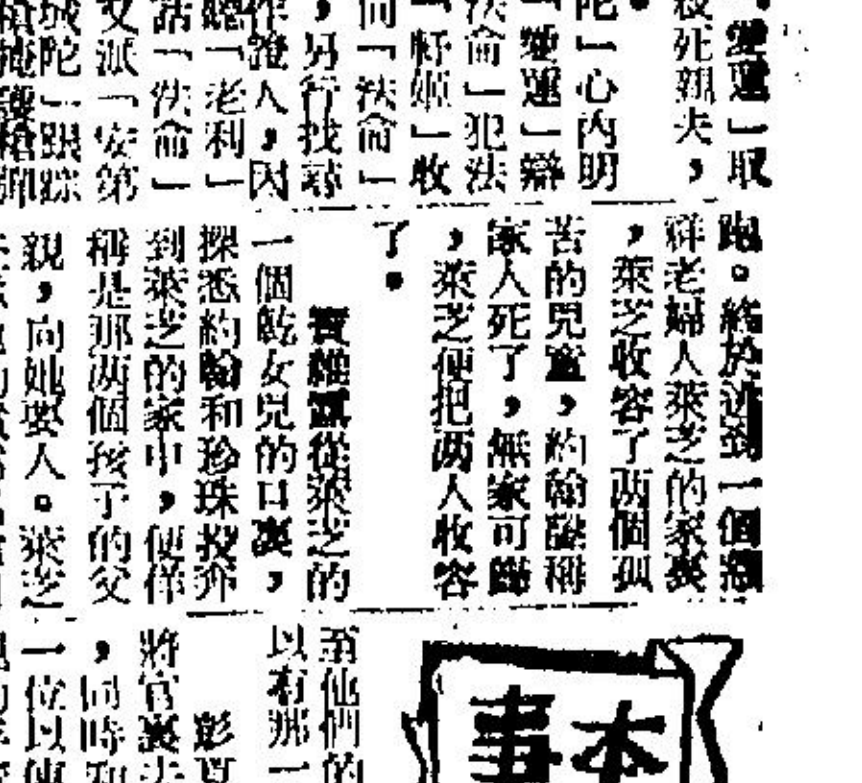 「雙運」取
殺死親夫，
。
陀」心內明
「雙運」辯
法侖」犯法
「軒姬」收
向「法侖」
，另行找尋
作證人，因
總「老利」
話「法侖」
又派「安第
城陀」跟踪
槍掩護槍彈
跑。終於逃到一個慈
祥老婦人萊芝的家裏
，萊芝收容了兩個孤
苦的兒童，約翰謊稱
家人死了，無家可歸
，萊芝便把兩人收容
了。
寶維爾從萊芝的
一個乾女兒的口裏，
探悉約翰和珍珠投奔
到萊芝的家中，便佯
稱是那兩個孩子的父
親，向她要人。萊芝
本事
至他們的
以有那一
彭夏
將官裏夫
，同時和
一位以